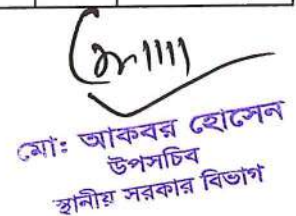 মো: আকবর হোসেন
উপসচিব
স্থানীয় সরকার বিভাগ